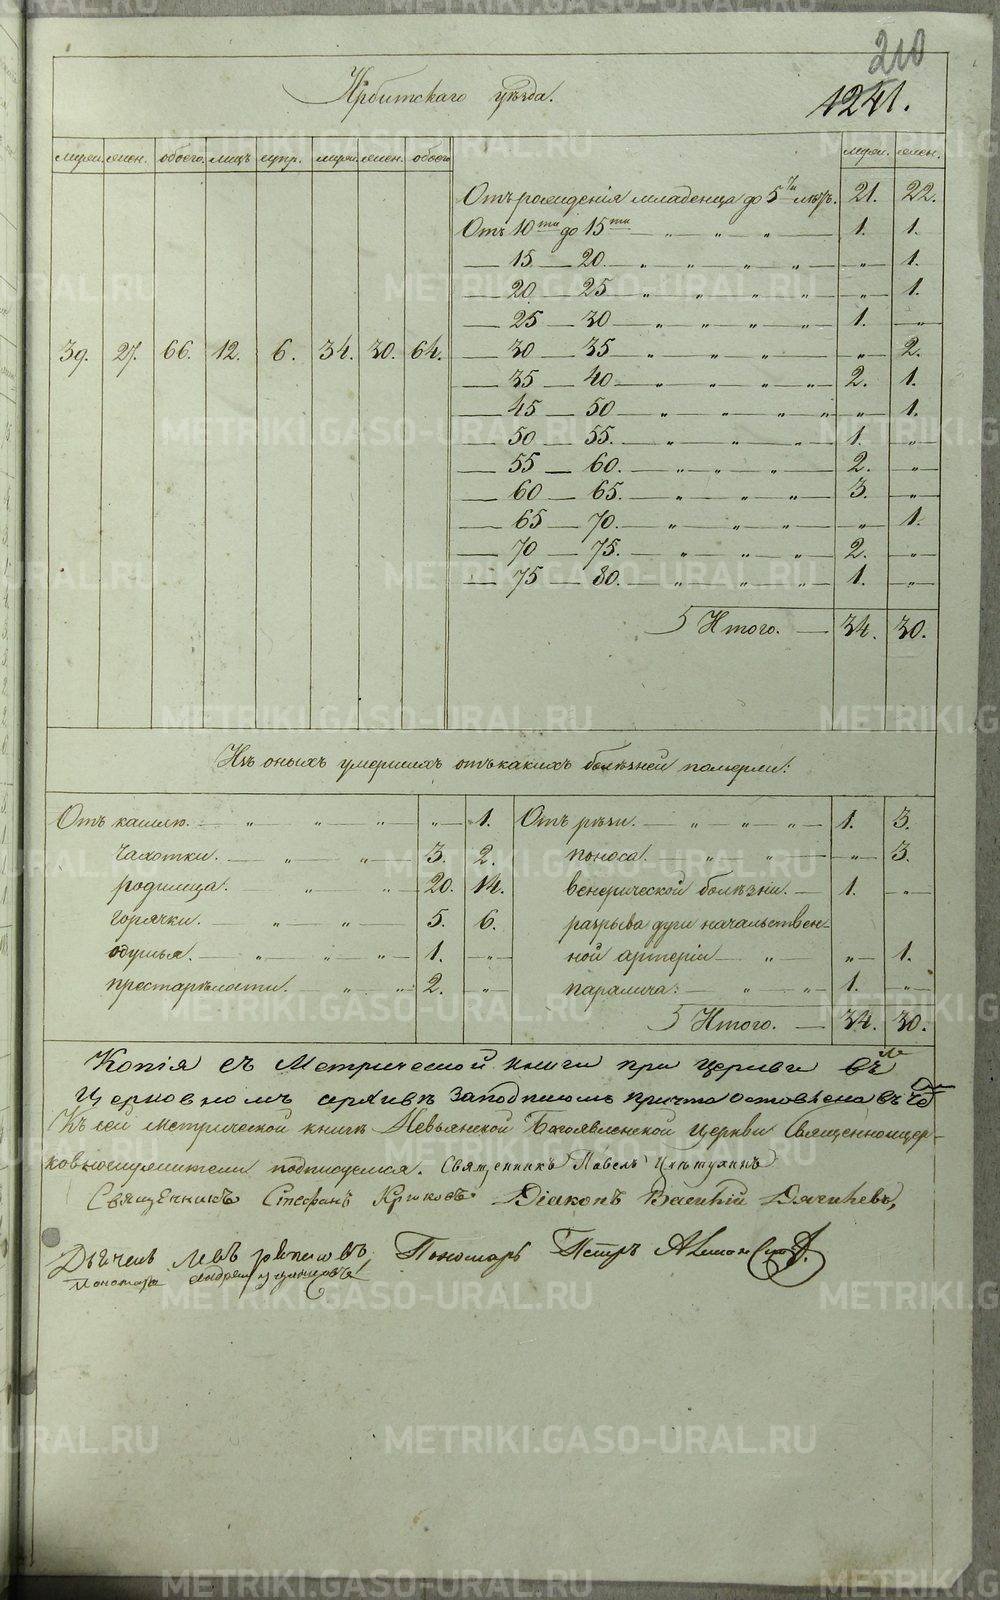 210
Ирбитскаго уѣзда.
1241.
муж. жен. обоего. лицъ супр. муж. жен. обоего
муж. жен.
Отъ рожденія младенца до 5ти лѣтъ. 21. 22.
Отъ 10ти до 15ти — „ — „ — „ — 1. 1.
— 15 — 20. — „ — „ — „ — „ — „ — 1.
— 20 — 25 — „ — „ — „ — „ — „ — 1.
— 25 — 30 — „ — „ — „ — „ — 1. — „ —
39. 27. 66. 12. 6. 34. 30. 64.
— 30 — 35 — „ — „ — „ — „ — 2.
— 35 — 40 — „ — „ — „ — „ — 2. 1.
— 45 — 50 — „ — „ — „ — „ — „ — 1.
— 50 — 55. — „ — „ — „ — 1. „ —
— 55 — 60. — „ — „ — „ — 2. „ —
— 60 — 65. — „ — „ — „ — 3. „ —
— 65 — 70. — „ — „ — „ — „ — 1.
— 70 — 75. — „ — „ — „ — 2. „ —
— 75 — 80. — „ — „ — „ — 1. „ —
Итого. — 34. 30.
Изъ оныхъ умершихъ отъ какихъ болѣзней померли:
Отъ кашлю. — „ — „ — „ — „ — 1.
чахотки. — „ — „ — 3. 2.
родимца. — „ — „ — 20. 14.
горячки. — „ — „ — 5. 6.
одушья. — „ — „ — „ — 1. — „ —
престарѣлости. — „ — „ 2. — „ —
Отъ рѣзи. — „ — „ — „ — 1. 3.
поноса. — „ — „ — „ — 3.
венерической болѣзни. — 1. — „ —
разрыва дуги начальствен-
ной артеріи — „ — „ — 1.
паралича. — „ — „ — 1. — „ —
Итого. — 34. 30.
Копія съ Метрической книги при церкви въ
Церковномъ архивѣ за подписомъ причта оставлена
Къ сей метрической книгѣ Невьянской Богоявленской церкви Священноцер-
ковнослужители подписуемся. Священникъ Павелъ
Священникъ Стефанъ Діаконъ Василій
Дьячекъ Левъ Пономарь Петръ
Пономарь Андрей
METRIKI.GASO-URAL.RU